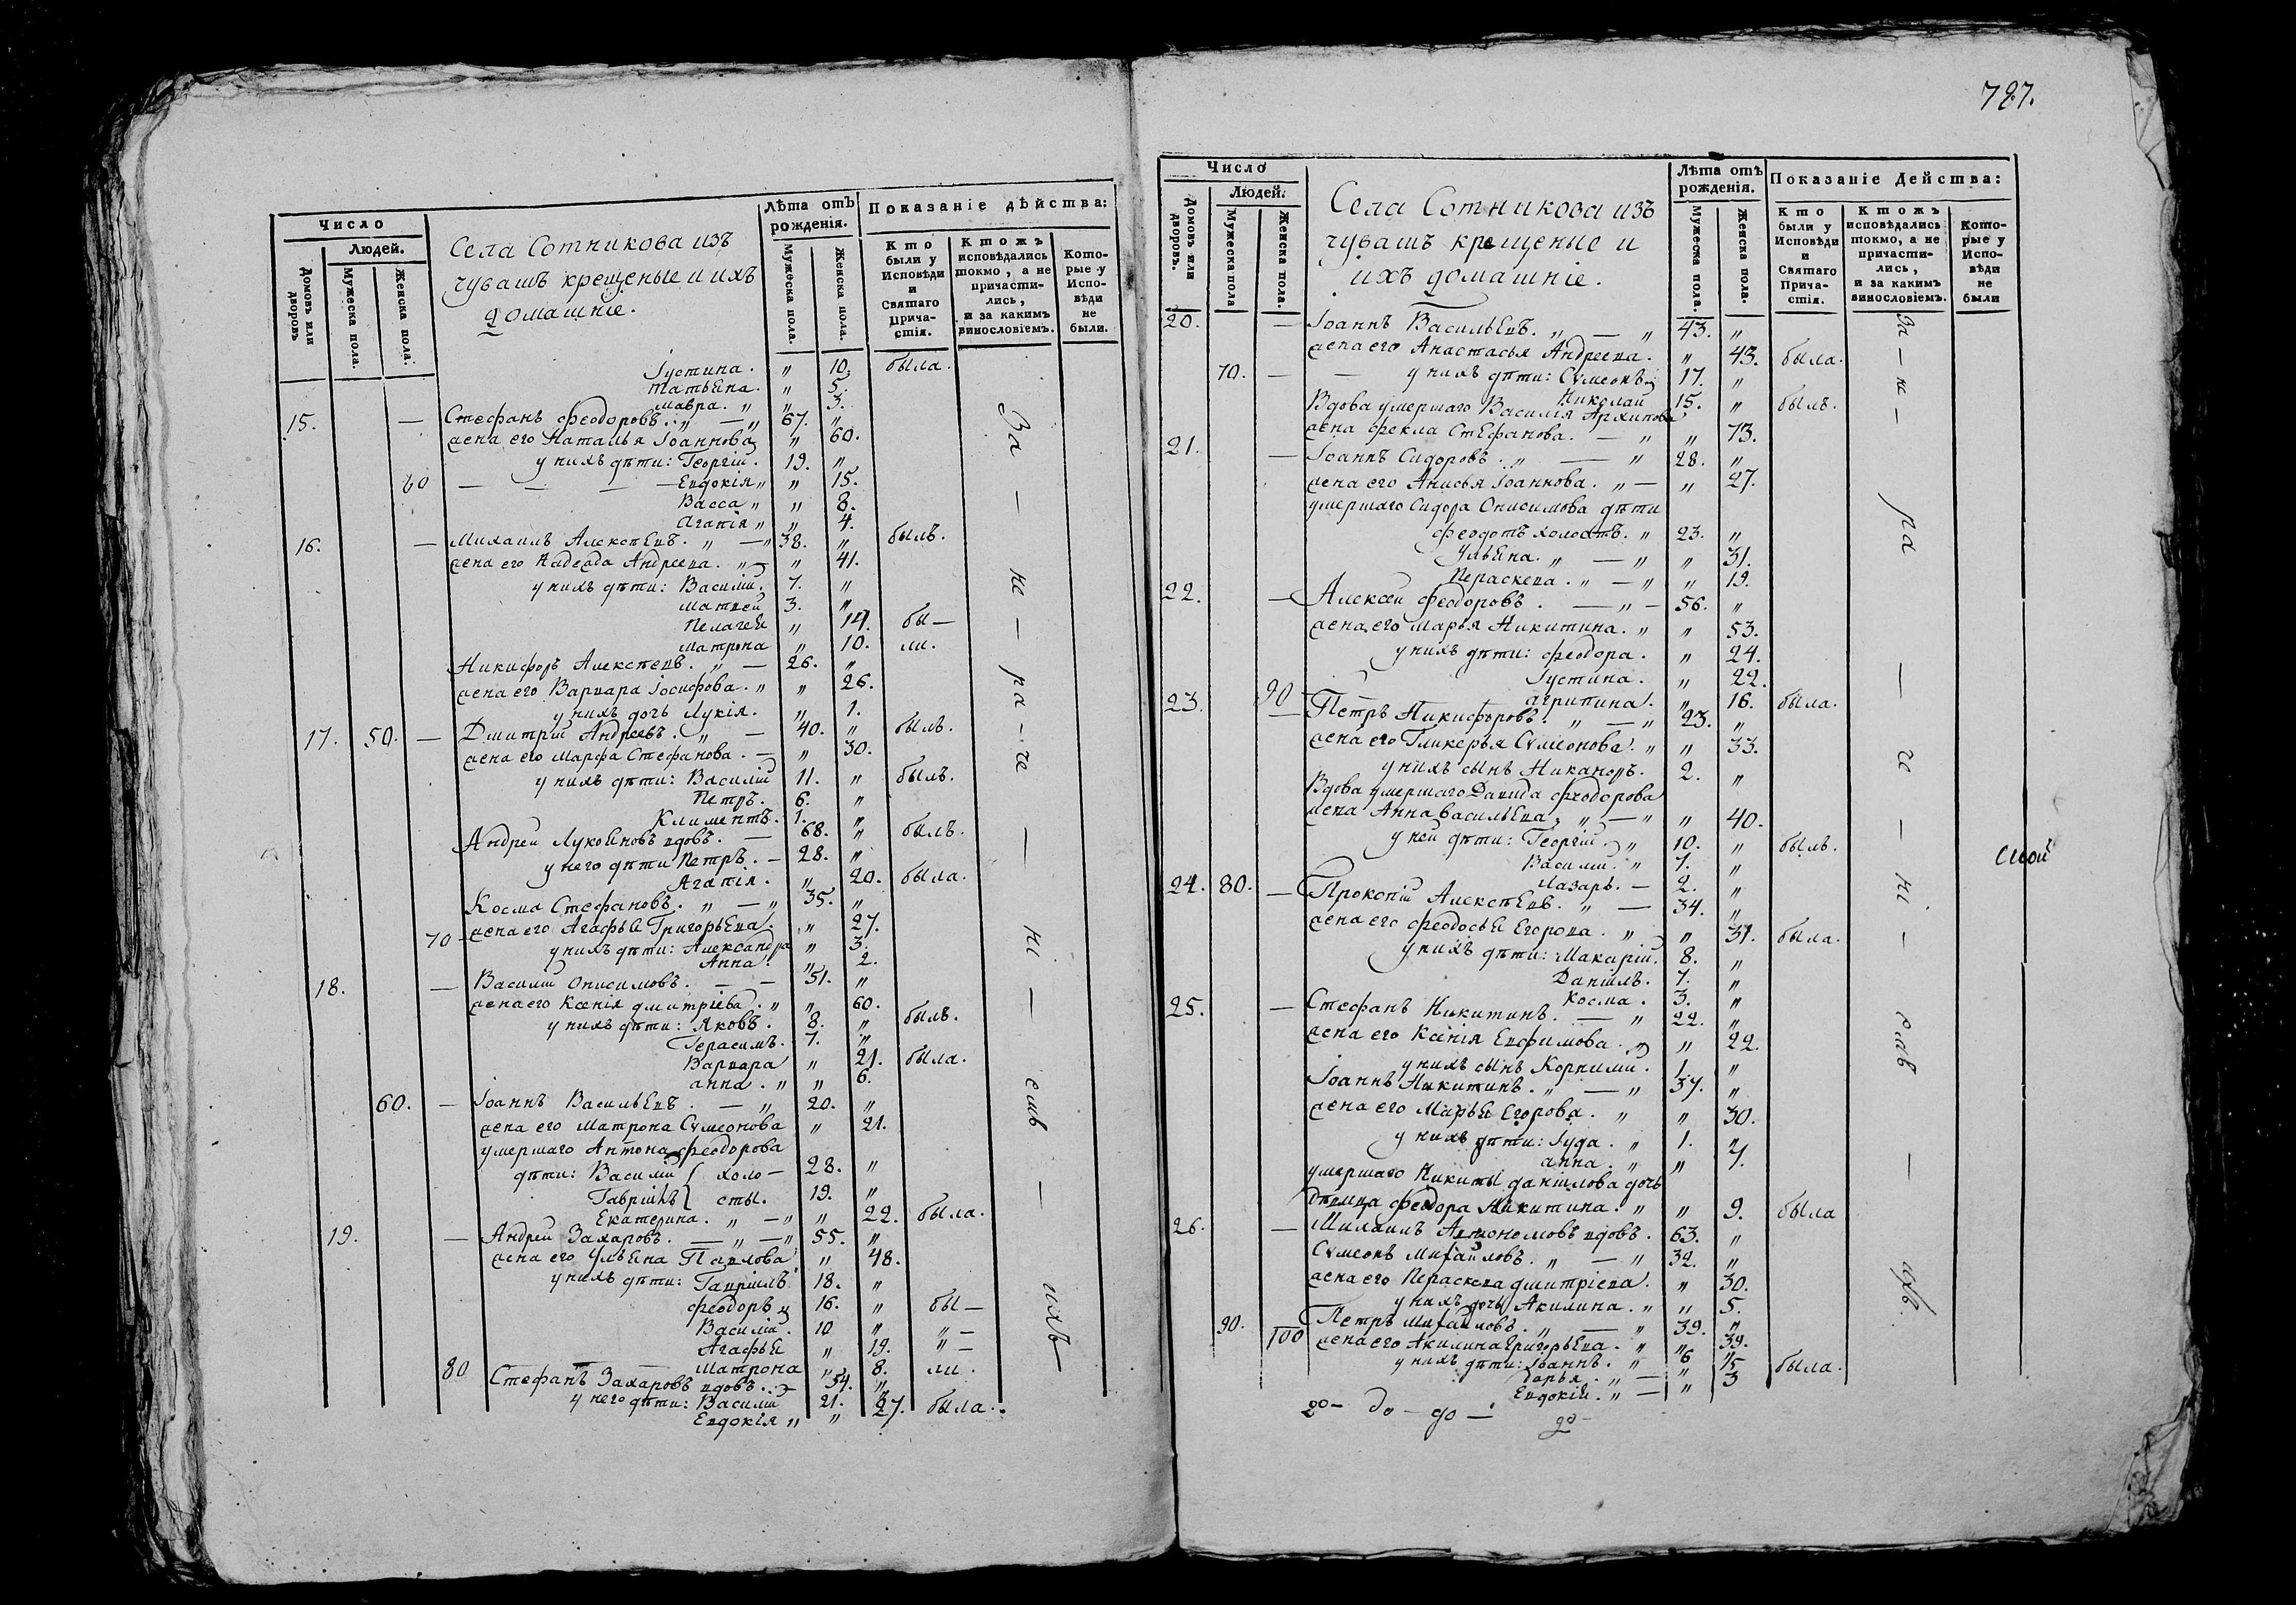 Число
Людей.
Домовъ или дворовъ
Мужеска пола.
Женска пола.
Села Сотникова изъ
чувашъ крещеные и ихъ
домашніе.
Лѣта отъ рожденія.
Мужеска пола.
Женска пола.
Показаніе дѣйства:
Кто были у Исповѣди и Святаго Прича-стія.
Ктожъ исповѣдались токмо, а не причасти-лись, и за какимъ винословіемъ.
Кото-рые у Испо-вѣди не были.
Іустина. " 10. была.
Татьяна. " 5.
Мавра. " " 3.
15. — Стефанъ Феодоровъ. " — " 67. "
жена его Наталья Іоаннова " 60.
у нихъ дѣти: Георгій. 19. "
60 — — — — Евдокія " " 15.
Васса " " 8.
Агапія " " 4.
16. — Михаилъ Алексѣевъ. " — " 38. " былъ.
жена его Надежда Андреева. " — " 41.
у нихъ дѣти: Василій. 7. "
Матвей 3. "
Пелагея " 14. бы—
Матрона " 10. ли.
Никифоръ Алексѣевъ. " — 26. "
жена его Варвара Іосифова. " " 26.
у нихъ дочь Лукія. " 1.
17. 50. — Дмитрій Андреевъ. " — 40. " былъ.
жена его Марфа Стефанова. — " 30.
у нихъ дѣти: Василій 11. " былъ.
Петръ. 6. "
Климентъ. 1. "
Андрей Лукояновъ вдовъ. — 68. " былъ.
у него дѣти Петръ. — 28. "
Агапія. " 20. была.
Косма Стефановъ. " — " 35. "
70 — жена его Агафья Григорьева. " 27.
у нихъ дѣти: Александра " 3.
Анна. " 2.
18. — Василій Онисимовъ. — — 51. "
жена его Ксенія Дмитріева. " " 60.
у нихъ дѣти: Яковъ. 8. " былъ.
Герасимъ. 7. "
Варвара " 21. была.
Анна. " " 6.
60. — Іоаннъ Васильевъ. — " 20. "
жена его Матрона Сѵмеонова " 21.
умершаго Антона Феодорова
дѣти: Василій { холо— 28. "
Гавріилъ } сты. 19. "
Екатерина. " — " " 22. была.
19. — Андрей Захаровъ. — " — " 55. "
жена его Ульяна Павлова " 48.
у нихъ дѣти: Гавріилъ 18. "
Феодоръ 16. " бы —
Василій. 10 " " —
Агафья " 19. " —
80 Матрона " 8. ли.
Стефанъ Захаровъ вдовъ. — 54. "
у него дѣти: Василій 21. "
Евдокія " " 27. была.
За — не — ра — че — ні — емъ — ихъ —
727.
Число
Людей.
Домовъ или дворовъ.
Мужеска пола
Женска пола.
Села Сотникова изъ
чувашъ крещеные и
ихъ домашніе.
Лѣта отъ рожденія.
Мужеска пола.
Женска пола.
Показаніе Действа:
Кто были у Исповѣди и Святаго Прича-стія.
Ктожъ исповѣдались токмо, а не причасти-лись, и за какимъ винословіемъ.
Кото-рые у Испо-вѣди не были
20. — Іоаннъ Васильевъ. " — " 43. "
жена его Анастасья Андреева. " 43. была.
70. — — у нихъ дѣти: Сѵмеонъ 17. "
Николай 15. " былъ.
Вдова умершаго Василія Архипова
жена Фекла Стефанова. — " " 73.
21. — Іоаннъ Сидоровъ. " — " 28. "
жена его Анисья Іоаннова. " — " 27.
умершаго Сидора Онисимова дѣти
Феодотъ холостъ. " 23. "
Ульяна. " — " " 31.
Параскева. " — " " 19.
22. — Алексей Феодоровъ. — " — 56. "
жена его Марья Никитина. " " 53.
у нихъ дѣти: Феодора. " 24.
Іустина. " 22.
90 — Агрипина. " 16. была.
23. — Петръ Никифоровъ. " — " 23. "
жена его Гликерья Сѵмеонова. " " 33.
у нихъ сынъ Никаноръ. 2. "
Вдова умершаго Давида Феодорова
жена Анна Васильева, " — " " 40.
у ней дѣти: Георгій. " 10. " былъ.
Василій. " 7. "
80. Лазарь. — 2. "
24. — Прокопій Алексѣевъ. " — 34. "
жена его Феодосья Егорова. " " 31. была.
у нихъ дѣти: Макарій. 8. "
Даніилъ. 7. "
Косма. 3. "
25. — Стефанъ Никитинъ. — " 22. "
жена его Ксенія Евфимова. " " 22.
у нихъ сынъ Корнилій. 1. "
Іоаннъ Никитинъ. " — " 37. "
жена его Марья Егорова. " " 30.
у нихъ дѣти: Іуда. " 1. "
Анна. " " 7.
умершаго Никиты Даніилова дочь
Дѣвица Феодора Никитина. " " 9. была
26. — Михаилъ Автономовъ вдовъ. 63. "
Сѵмеонъ Михайловъ. " — " 32. "
жена его Параскева Дмитріева. " 30.
у нихъ дочь Акилина. " " 5.
90. Петръ Михайловъ. " — " 39. "
100 жена его Акилина Григорьева. " " 39.
у нихъ дѣти: Іоаннъ. " 6 "
Дарья. " — " 15 была.
Евдокія. " — " 3
За — не — ра — че — ні — емъ — ихъ.